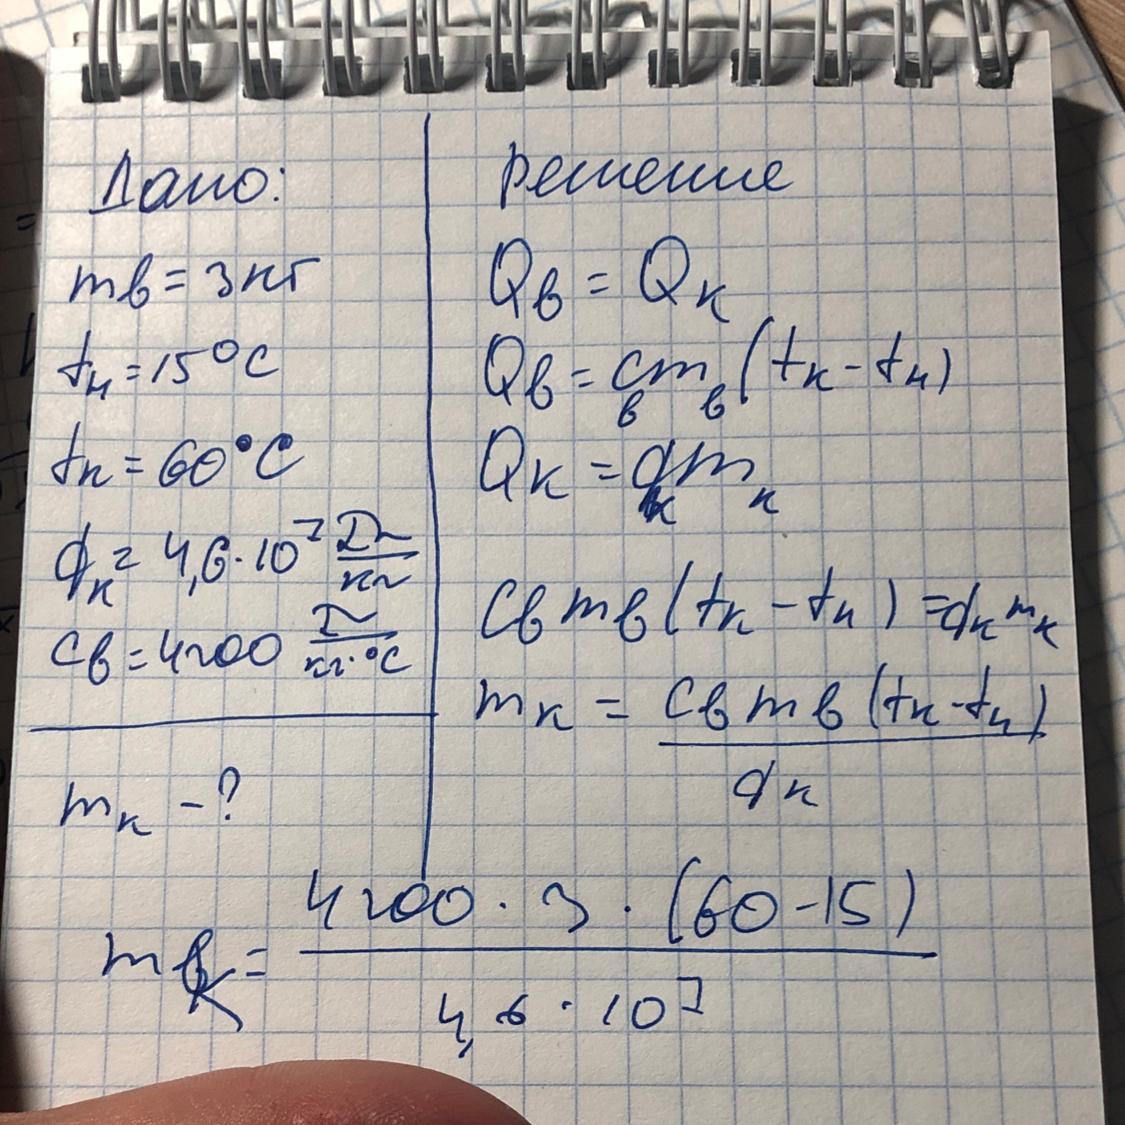 Дано:
mв = 3кг
tн = 15°C
tк = 60°C
qк = 4,6·10⁷ Дж/кг
cв = 4200 Дж/кг·°C
mк - ?
решение
Qв = Qк
Qв = cвmв(tк - tн)
Qк = qкmк
Cв mв (tк - tн) = qк mк
mк = Cв mв (tк - tн) / qк
mк = 4200 · 3 · (60 - 15) / 4,6 · 10⁷